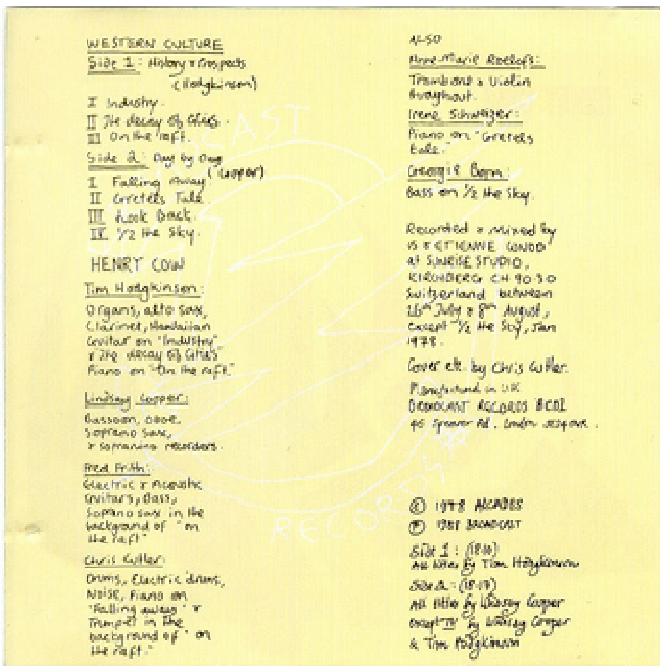 WESTERN CULTURE
Side 1: History & Prospects
(Hodgkinson)
I Industry.
II The decay of Cities.
III On the raft.
Side 2: Day by Day
(Cooper)
I Falling Away
II Gretels Tale
III Look Back.
IV 1/2 the Sky.
HENRY COW
Tim Hodgkinson:
Organs, alto sax,
Clarinet, Hawaiian
Guitar on "Industry"
& "The decay of Cities"
Piano on "On the raft."
Lindsay Cooper:
Bassoon, oboe,
Soprano sax,
& sopranino recorders.
Fred Frith:
Electric & Acoustic
Guitars, Bass,
Soprano sax in the
background of "on
the raft"
Chris Cutler:
Drums, Electric drums,
NOISE, Piano on
"Falling away" &
Trumpet in the
background of "on
the raft."
ALSO
Anne-Marie Roelofs:
Trombone & Violin
throughout.
Irene Schweizer:
Piano on "Gretels
tale."
Georgie Born:
Bass on 1/2 the Sky.
Recorded & Mixed by
US & ETIENNE CONOD
at SUNRISE STUDIO,
KIRCHBERG CH 9030
Switzerland between
26th July & 8th August,
except 1/2 the Sky, Jan
1978.
Cover etc. by Chris Cutler.
Manufactured in UK
BROADCAST RECORDS BC01
46 Spenser Rd. London
© 1978
℗ 1988 BROADCAST
Side 1: (18.10)
All titles by Tim Hodgkinson
Side 2: (18.17)
All titles by Lindsay Cooper
except "IV" by Lindsay Cooper
& Tim Hodgkinson
RECORDS